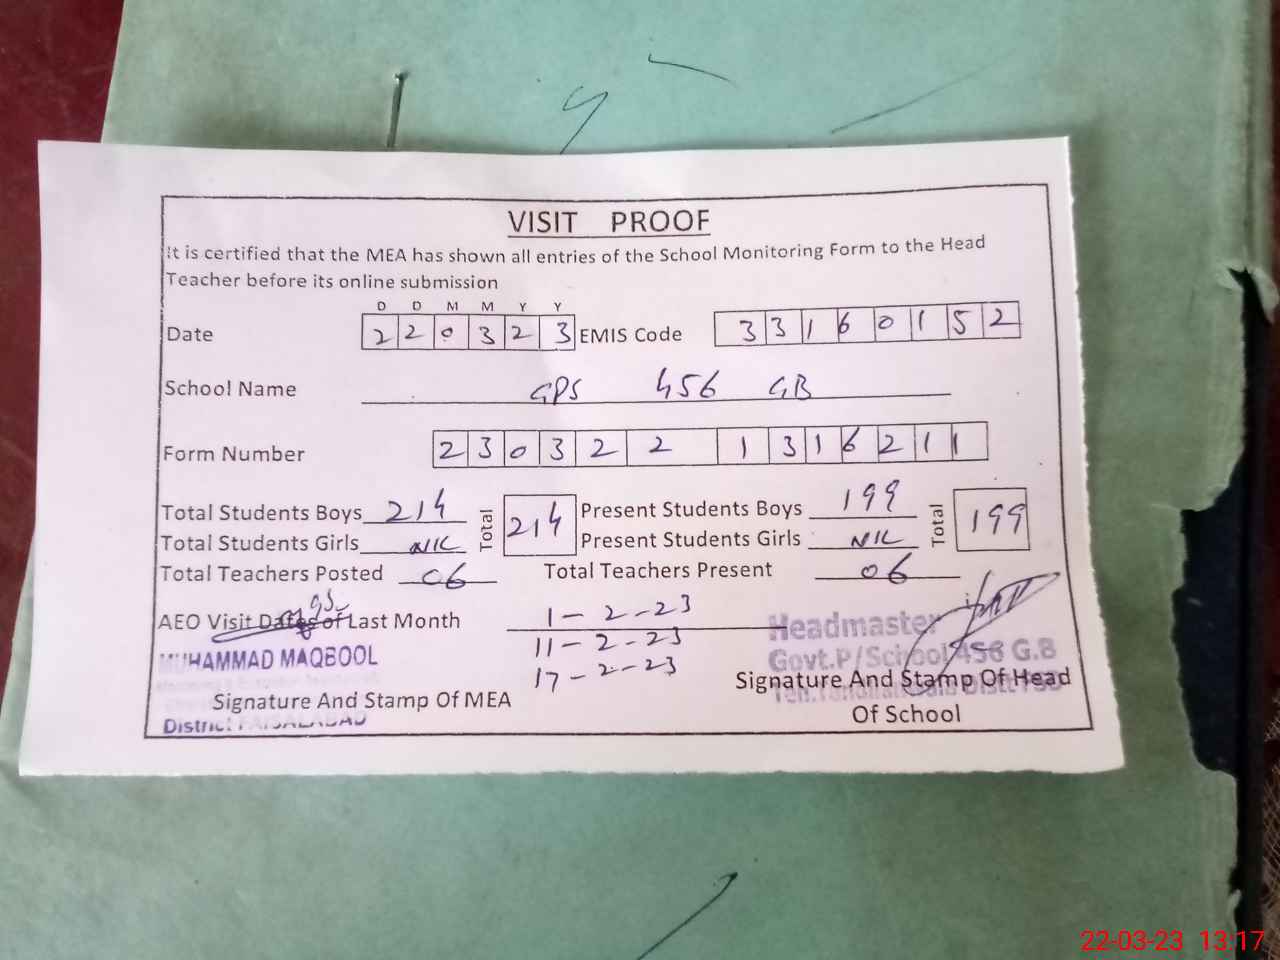 VISIT PROOF
It is certified that the MEA has shown all entries of the School Monitoring Form to the Head
Teacher before its online submission
D D M M Y Y
Date 2 2 0 3 2 3 EMIS Code 3 3 1 6 0 1 5 2
School Name GPS 456 GB
Form Number 2 3 0 3 2 2 2 1 3 1 6 2 1 1
Total Students Boys 214 Total 214 Present Students Boys 199 Total 199
Total Students Girls NIL Present Students Girls NIL
Total Teachers Posted 06 Total Teachers Present 06
AEO Visit Dates of Last Month 1-2-23
11-2-23
17-2-23
MUHAMMAD MAQBOOL
District FAISALABAD
Signature And Stamp Of MEA
Headmaster
Govt.P/School 456 G.B
Signature And Stamp Of Head
Of School
22-03-23 13:17